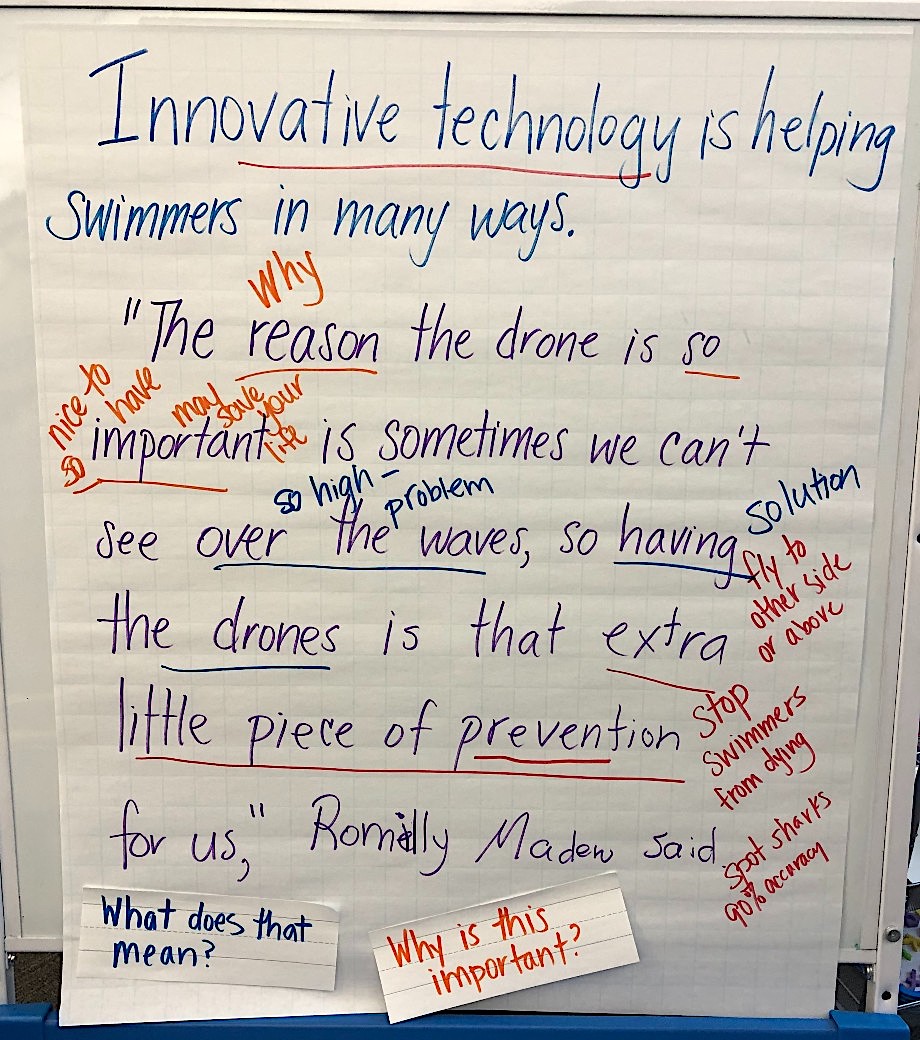 Innovative technology is helping
swimmers in many ways.
why
"The reason the drone is so
nice to have
may save your life
so important is sometimes we can't
so high - problem
solution
see over the waves, so having
fly to
other side
or above
the drones is that extra
stop
swimmers
from dying
little piece of prevention
for us," Romilly Madew said
spot sharks
90% accuracy
What does that
mean?
Why is this
important?